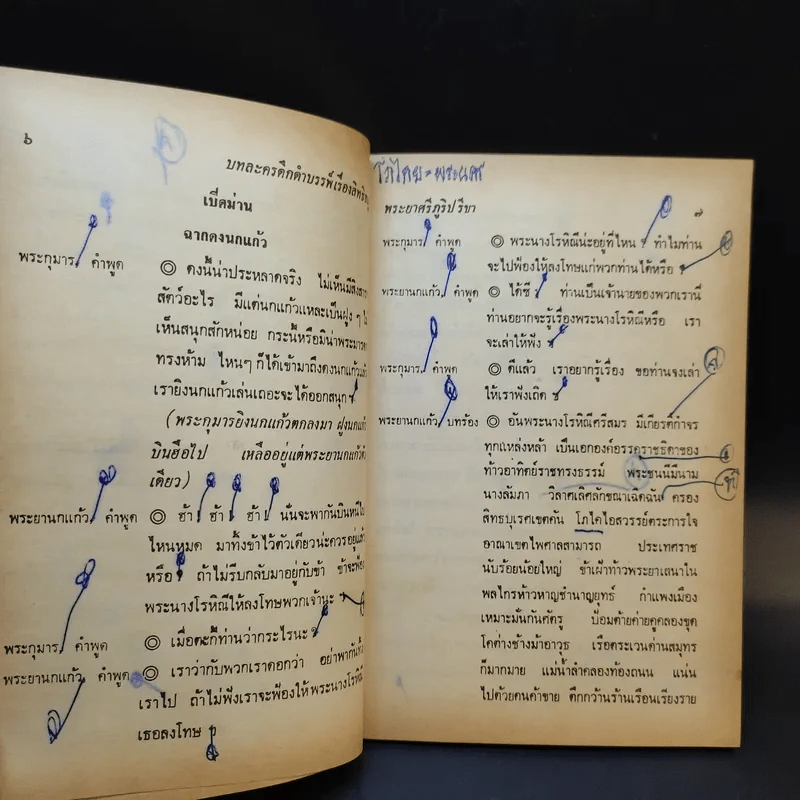 ๖
บทละครดึกดำบรรพ์เรื่องสิทธิ
เปิดม่าน
ฉากดงนกแก้ว
พระกุมาร คำพูด ◎ ดงนี้น่าประหลาดจริง ไม่เห็นมีสิงสา
สัตว์อะไร มีแต่นกแก้วแหละเป็นฝูง ๆ
เห็นสนุกสักหน่อย กระนี้หรือมิน่าพระมารดา
ทรงห้าม ไหนๆ ก็ได้เข้ามาถึงดงนกแก้วแล้ว
เรายิงนกแก้วเล่นเถอะจะได้ออกสนุก
(พระกุมารยิงนกแก้วตกลงมา ฝูงนกแก้ว
บินฮือไป เหลืออยู่แต่พระยานกแก้วตัว
เดียว)
พระยานกแก้ว คำพูด ◎ ฮ้า ฮ้า ฮ้า นั่นจะพากันบินหนีไป
ไหนหมด มาทิ้งข้าไว้ตัวเดียวน่ะควรอยู่แล้ว
หรือ ถ้าไม่รีบกลับมาอยู่กับข้า ข้าจะฟ้อง
พระนางโรหิณีให้ลงโทษพวกเจ้านะ
พระกุมาร คำพูด ◎ เมื่อตะกี้ท่านว่ากระไรนะ
พระยานกแก้ว คำพูด ◎ เราว่ากับพวกเราดอกว่า อย่าพากันทิ้ง
เราไป ถ้าไม่ฟังเราจะฟ้องให้พระนางโรหิณี
เธอลงโทษ
โภไคย - พระนคร
พระยาศรีภูริปรีชา
๗
พระกุมาร คำพูด ◎ พระนางโรหิณีน่ะอยู่ที่ไหน ทำไมท่าน
จะไปฟ้องให้ลงโทษแก่พวกท่านได้หรือ
พระยานกแก้ว คำพูด ◎ ได้ซี ท่านเป็นเจ้านายของพวกเรานี่
ท่านอยากจะรู้เรื่องพระนางโรหิณีหรือ เรา
จะเล่าให้ฟัง
พระกุมาร คำพูด ◎ ดีแล้ว เราอยากรู้เรื่อง ขอท่านจงเล่า
ให้เราฟังเถิด
พระยานกแก้ว บทร้อง ◎ อันพระนางโรหิณีศรีสมร มีเกียรติกำจร
ทุกแหล่งหล้า เป็นเอกองค์อรรคราชธิดาของ
ท้าวอาทิตย์ราชทรงธรรม์ พระชนนีมีนาม
นางลัมภา วิลาศเลิศลักขณาเฉิดฉัน ครอง
สิทธบุเรศเขตคัน โภไคไอสวรรย์ตระการใจ
อาณาเขตไพศาลสามารถ ประเทศราช
นับร้อยน้อยใหญ่ ข้าเฝ้าท้าวพระยาเสนาใน
พลไกรห้าวหาญชำนาญยุทธ์ กำแพงเมือง
เหมาะมั่นกันศัตรู ป้อมค่ายค่ายคูคลองขุด
โคต่างช้างม้าอาวุธ เรือตระเวนด่านสมุทร
ก็มากมาย แม่น้ำลำคลองท้องถนน แน่น
ไปด้วยคนค้าขาย ตึกกว้านร้านเรือนเรียงราย